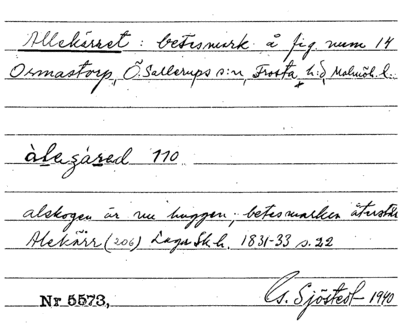 Allekärret : betesmark å fig. num 14
Ormastorp, Ö. Sallerups s:n, Frosta h:d, Malmöh. l.
àlagáred 110
alskogen är nu huggen; betesmarken återstår
Alekärr (206) Laga Sk. h. 1831-33 s. 22
Nr 5573, G. Sjöstedt 1940